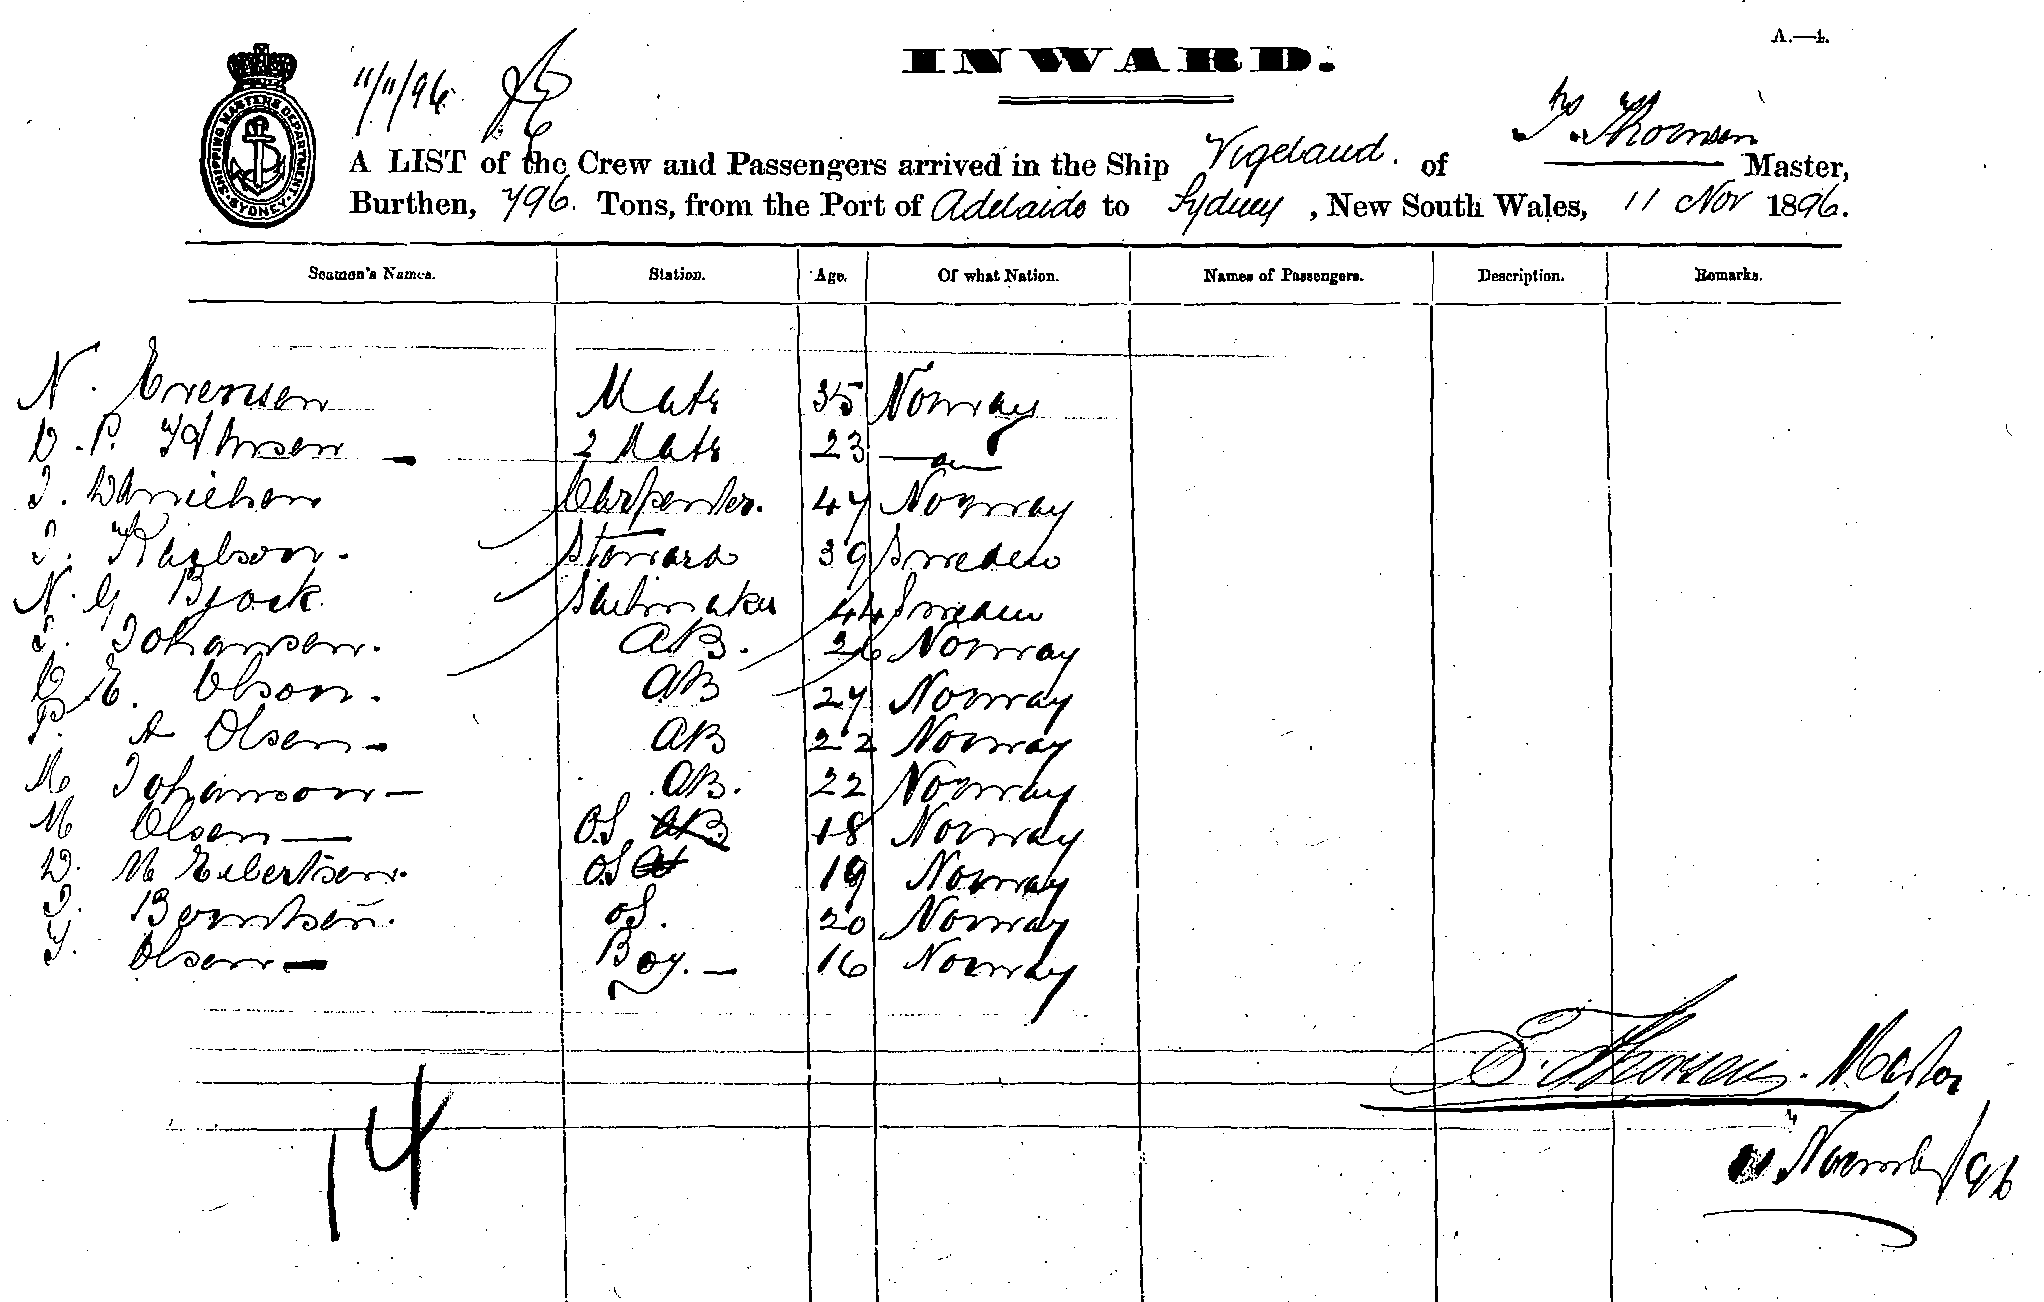 A.—4.
INWARD.
11/11/96.
SHIPPING MASTER'S DEPARTMENT SYDNEY
A LIST of the Crew and Passengers arrived in the Ship Vigeland. of Thomsen Master,
Burthen, 796. Tons, from the Port of Adelaide to Sydney, New South Wales, 11 Nov 1896.
Seamen's Names. Station. Age. Of what Nation. Names of Passengers. Description. Remarks.
N. Evensen Mate 35 Norway
2 Mate 23
Danielsen Carpenter. 47 Norway
Karlson. Steward 39 Sweden
N. G Bjork Sailmaker 44 Sweden
Johansen. AB. 26 Norway
E. Olson. AB 27 Norway
P. A Olsen AB 22 Norway
M Johanson AB. 22 Norway
M Olsen OS AB 18 Norway
D. M Eilertsen. OS 19 Norway
Berntsen. OS. 20 Norway
Olsen Boy. 16 Norway
Master
14
11 Novemb/96